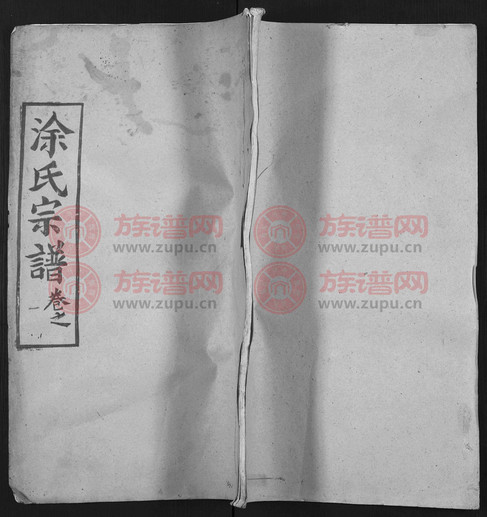 涂氏宗譜
卷之一
族谱网 族谱网
www.zupu.cn www.zupu.cn
族谱网 族谱网
www.zupu.cn www.zupu.cn